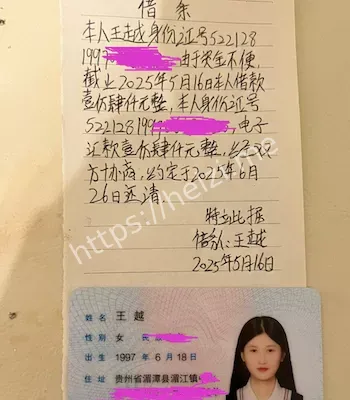 借条
本人王越身份证号522128
1997 由于资金不便,
截止2025年5月16日本人借款
壹万肆仟元整,本人身份证号
522128199 ,电子
证款壹万肆仟元整,经双
方协商,约定于2025年6月
26日还清
特立此据
借款人:王越
2025年5月16日
https://heizi.me
姓名 王越
性别 女 民族
出生 1997年6月18日
住址 贵州省湄潭县湄江镇